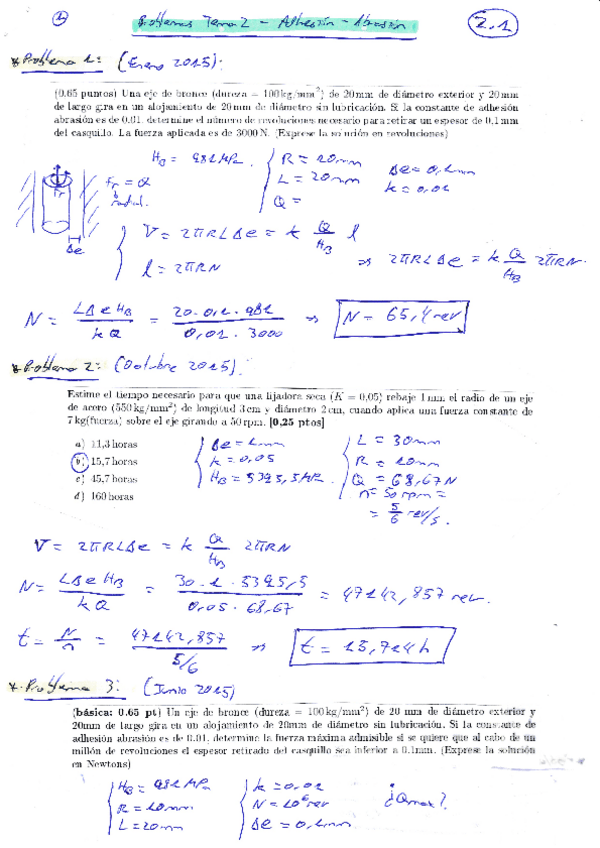 ① Problemas Tema 2 - Adhesión - Abrasión. 2.1
* Problema 1: (Enero 2015):
(0.65 puntos) Una eje de bronce (dureza = 100 kg/mm²) de 20 mm de diámetro exterior y 20 mm
de largo gira en un alojamiento de 20 mm de diámetro sin lubricación. Si la constante de adhesión
abrasión es de 0.01, determine el número de revoluciones necesario para retirar un espesor de 0,1 mm
del casquillo. La fuerza aplicada es de 3000 N. (Exprese la solución en revoluciones)
H_B = 981 MPa.
R = 10mm
L = 20mm
Q =
Δe = 0,1mm
k = 0,01
Fr = Q
radial.
Fr
Δe
V = 2πRLΔe = k Q/H_B l
l = 2πRN
⇒ 2πRLΔe = k Q/H_B 2πRN.
N = LΔe H_B / k Q = 20 · 0,1 · 981 / 0,01 · 3000 ⇒ N = 65,4 rev
* Problema 2: (Octubre 2015):
Estime el tiempo necesario para que una lijadora seca (K = 0,05) rebaje 1 mm el radio de un eje
de acero (550 kg/mm²) de longitud 3 cm y diámetro 2 cm, cuando aplica una fuerza constante de
7 kg(fuerza) sobre el eje girando a 50 rpm. [0,25 ptos]
a) 11,3 horas
b) 15,7 horas
c) 45,7 horas
d) 160 horas
Δe = 1mm
k = 0,05
H_B = 5395,5 MPa.
L = 30mm
R = 10mm
Q = 68,67N
n = 50 rpm =
= 5/6 rev/s.
V = 2πRLΔe = k Q/H_B 2πRN
N = LΔe H_B / k Q = 30 · 1 · 5395,5 / 0,05 · 68,67 = 47142,857 rev.
t = N/n = 47142,857 / 5/6 ⇒ t = 15,714 h
* Problema 3: (Junio 2015)
(básica: 0.65 pt) Un eje de bronce (dureza = 100 kg/mm²) de 20 mm de diámetro exterior y
20mm de largo gira en un alojamiento de 20mm de diámetro sin lubricación. Si la constante de
adhesión abrasión es de 0.01, determine la fuerza máxima admisible si se quiere que al cabo de un
millón de revoluciones el espesor retirado del casquillo sea inferior a 0.1mm. (Exprese la solución
en Newtons)
H_B = 981 MPa
R = 10mm
L = 20mm
k = 0,01
N = 10⁶ rev
Δe = 0,1mm
¿Qmax?